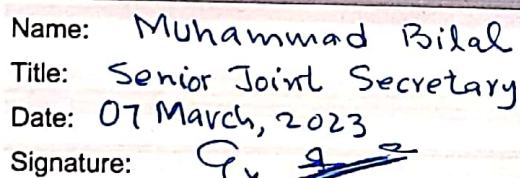 Name: Muhammad Bilal
Title: Senior Joint Secretary
Date: 07 March, 2023
Signature: